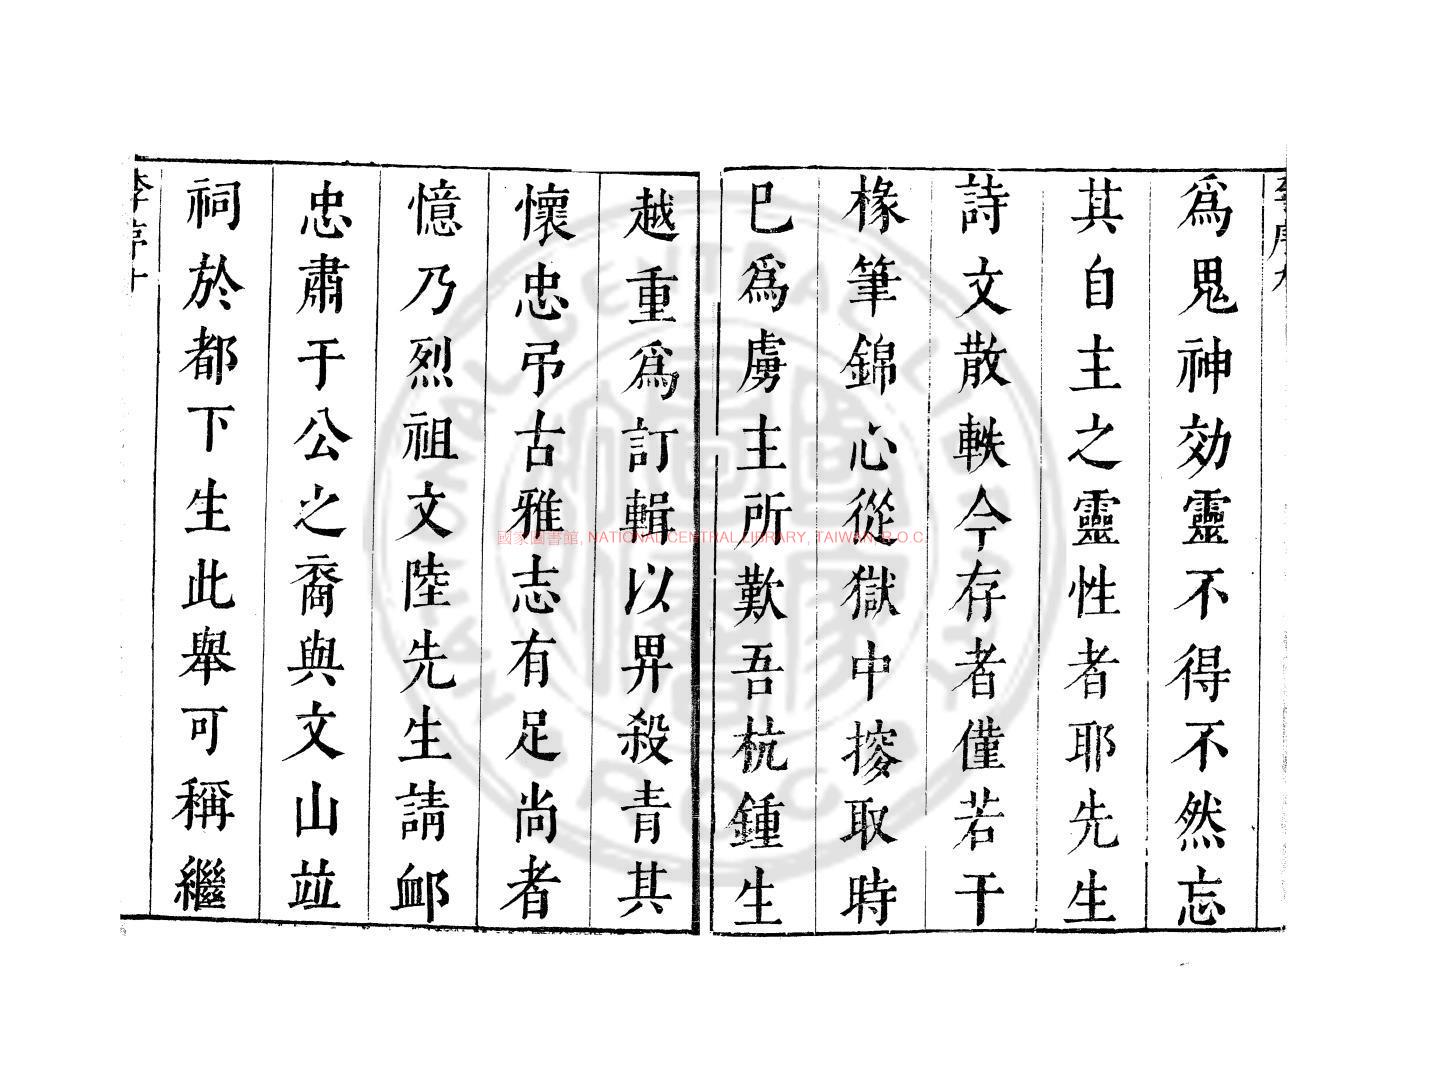 李序九
爲鬼神効靈不得不然忘
其自主之靈性者耶先生
詩文散軼今存者僅若干
椽筆錦心從獄中撡取時
巳爲虜主所歎吾杭鍾生
越重爲訂輯以畀殺青其
懷忠弔古雅志有足尚者
憶乃烈祖文陸先生請衈
忠肅于公之裔與文山竝
祠於都下生此舉可稱繼
李序十
國家圖書館, NATIONAL CENTRAL LIBRARY, TAIWAN, R.O.C.